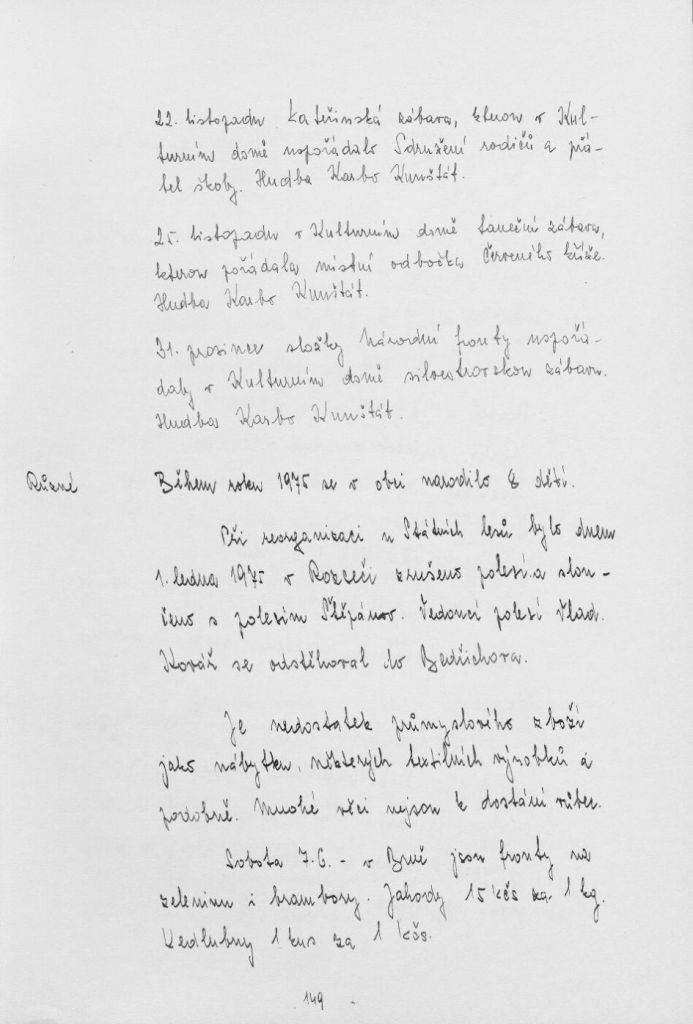 22. listopadu Kateřinská zábava, kterou v Kul-
turním domě uspořádalo Sdružení rodičů a přá-
tel školy. Hudba Karbo Kunštát.
25. listopadu v Kulturním domě taneční zábava,
kterou pořádala místní odbočka Červeného kříže.
Hudba Karbo Kunštát.
31. prosince složky Národní fronty uspořá-
daly v Kulturním domě silvestrovskou zábavu.
Hudba Karbo Kunštát.
Různé
Během roku 1975 se v obci narodilo 8 dětí.
Při reorganizaci u Státních lesů bylo dnem
1. ledna 1975 v Rozseči zrušeno polesí a slou-
čeno s polesím Štěpánov. Vedoucí polesí Vlad.
Kovář se odstěhoval do Bedřichova.
Je nedostatek průmyslového zboží
jako nábytku, některých textilních výrobků a
podobně. Mnohé věci nejsou k dostání vůbec.
Sobota 7.6. - v Brně jsou fronty na
zeleninu i brambory. Jahody 15 kčs za 1 kg.
Kedlubny 1 kus za 1 kčs.
149